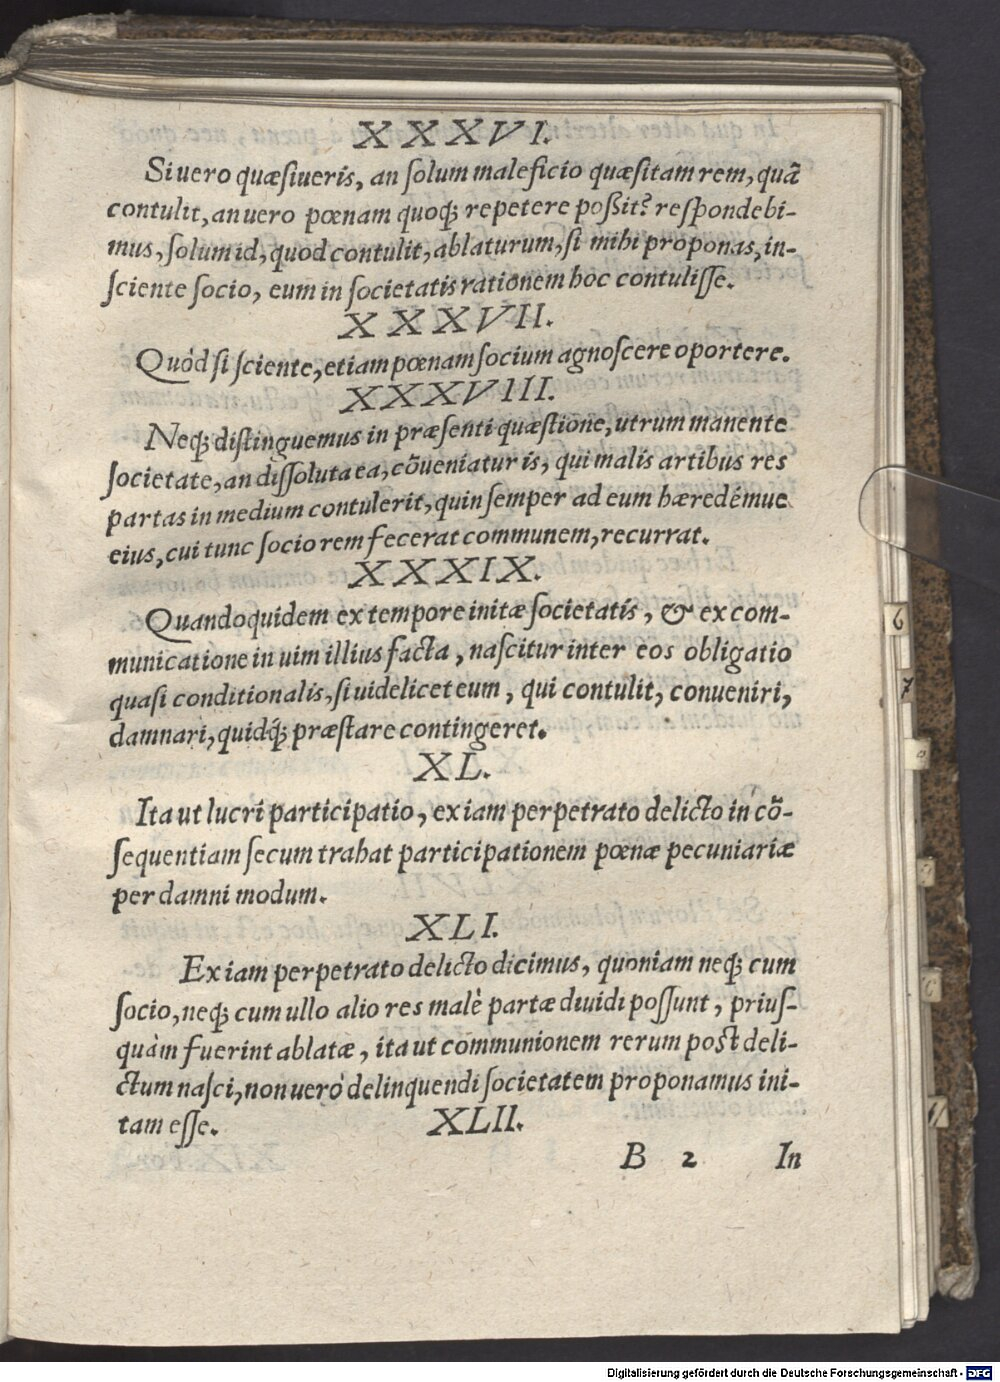 XXXVI.
Si uero quæsiueris, an solum maleficio quæsitam rem, quã
contulit, an uero pœnam quoq; repetere poßit? respondebi-
mus, solum id, quod contulit, ablaturum, si mihi proponas, in-
sciente socio, eum in societatis rationem hoc contulisse.
XXXVII.
Quòd si sciente, etiam pœnam socium agnoscere oportere.
XXXVIII.
Neq; distinguemus in præsenti quæstione, utrum manente
societate, an dissoluta ea, cõueniatur is, qui malis artibus res
partas in medium contulerit, quin semper ad eum hæredémue
eius, cui tunc socio rem fecerat communem, recurrat.
XXXIX.
Quandoquidem ex tempore initæ societatis, & ex com-
municatione in uim illius facta, nascitur inter eos obligatio
quasi conditionalis, si uidelicet eum, qui contulit, conueniri,
damnari, quidq́; præstare contingeret.
XL.
Ita ut lucri participatio, ex iam perpetrato delicto in cõ-
sequentiam secum trahat participationem pœnæ pecuniariæ
per damni modum.
XLI.
Ex iam perpetrato delicto dicimus, quoniam neq; cum
socio, neq; cum ullo alio res malè partæ diuidi possunt, prius-
quàm fuerint ablatæ, ita ut communionem rerum post deli-
ctum nasci, non uerò delinquendi societatem proponamus ini-
tam esse.
XLII.
B 2 In
6
7
Digitalisierung gefördert durch die Deutsche Forschungsgemeinschaft - DFG